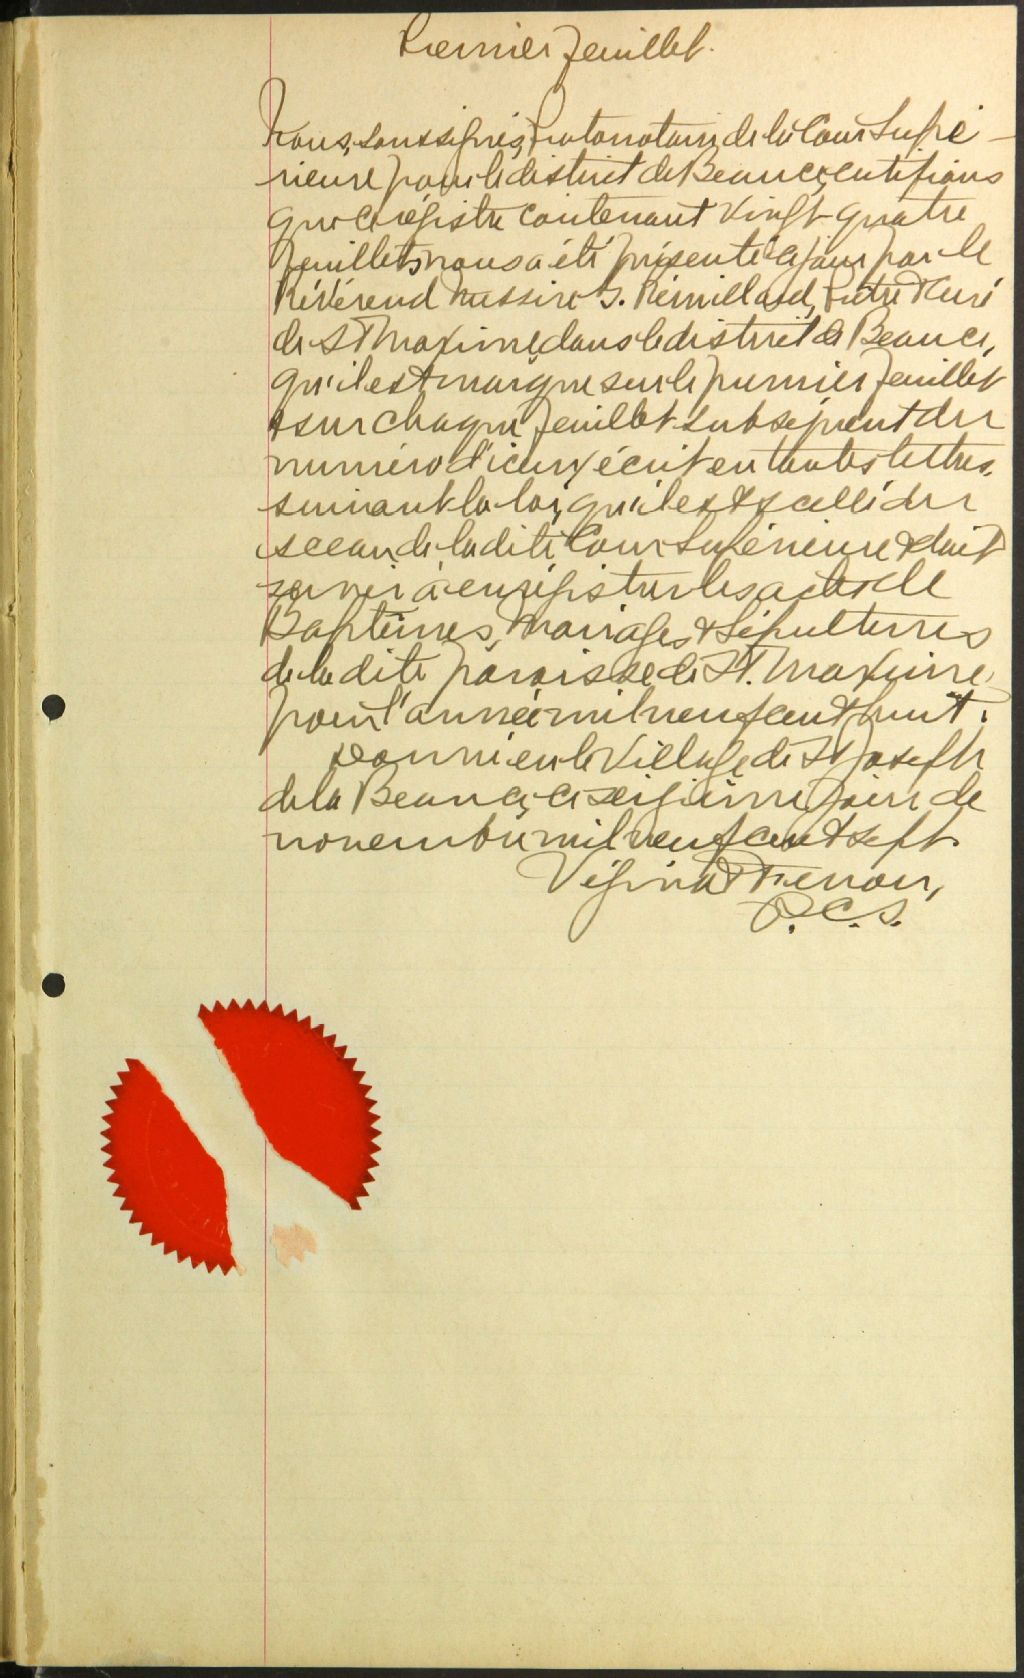 Premier feuillet.
Nous, soussignés, Protonotaire de la Cour Supé-
rieure pour le district de Beauce, certifions
que ce régistre contenant vingt-quatre
feuillets nous a été présenté ce jour par le
Révérend Messire J. Rémillard, Prêtre & Curé
de St Maxime dans le district de Beauce,
qu'il est marqué sur le premier feuillet
& sur chaque feuillet subséquent du
numéro d'iceux écrit en toutes lettres,
suivant la loi, qu'il est scellé du
sceau de la dite Cour Supérieure & doit
servir à enrégistrer les actes de
Baptêmes, Mariages & Sépultures
de la dite paroisse de St. Maxime,
pour l'année mil neuf cent huit.
Donné en le village de St Joseph
de la Beauce, ce seizième jour de
novembre mil neuf cent sept.
Vézina &
P.C.S.